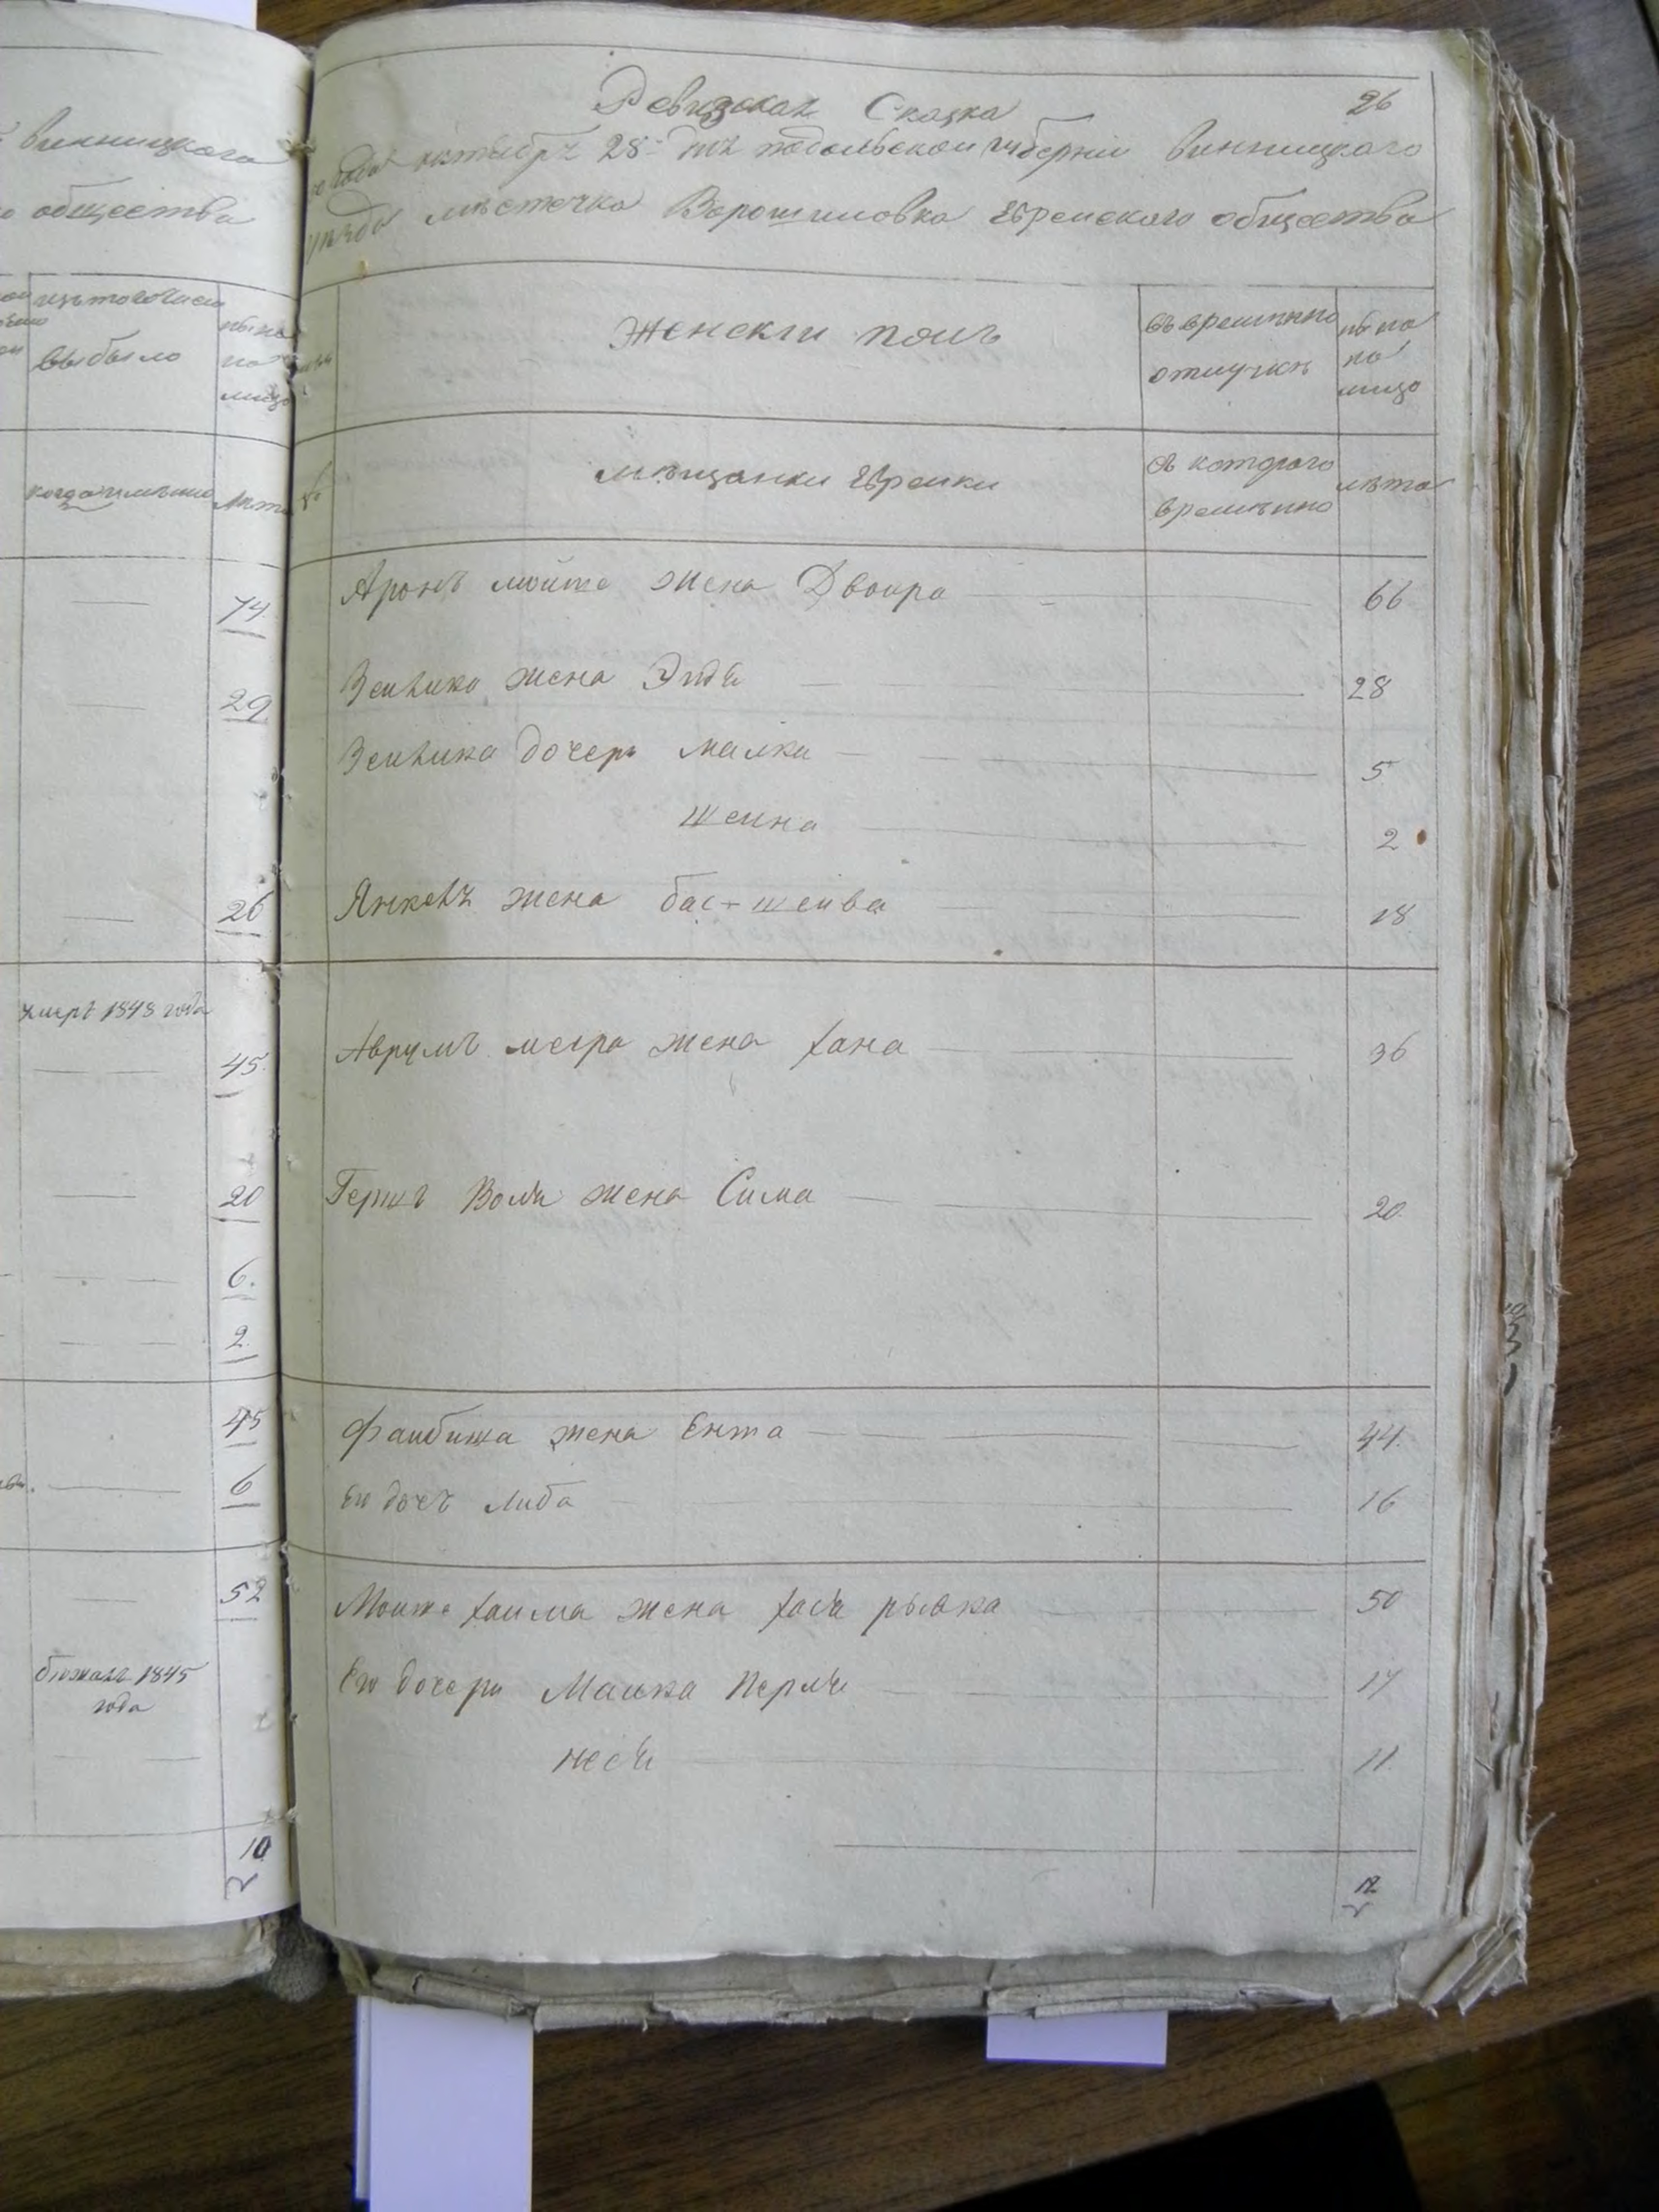 винницкого
общества
изътого числа
выбыло
ныне
на
лицо
когда именно
Лета
74
29
26
умеръ 1848 года
45
20
6.
2.
45
6
52
бежалъ 1845
года
10
Ревизская Сказка
26
года октября 28 дня подольской губернiи винницкого
уезда местечка Ворошиловка Еврейского общества
Женскги полъ
въ временно
отлучкъ
ны на
на
лицо
мещанки Евреики
съ которого
временно
лета
Аронъ мошко жена Двоира 66
Зейлика жена Эидя 28
Зейлика дочерь малка 5
шеина 2
Янкель жена бас-шейва 18
Аврумъ меера жена хана 36
Гершъ Воля жена Сима 20
Фаибиша жена Ента 44.
Ею дочъ либа 16
Мошко хаима жена хася рывка 50
Ею дочери Малка перля 17
нося 11
12